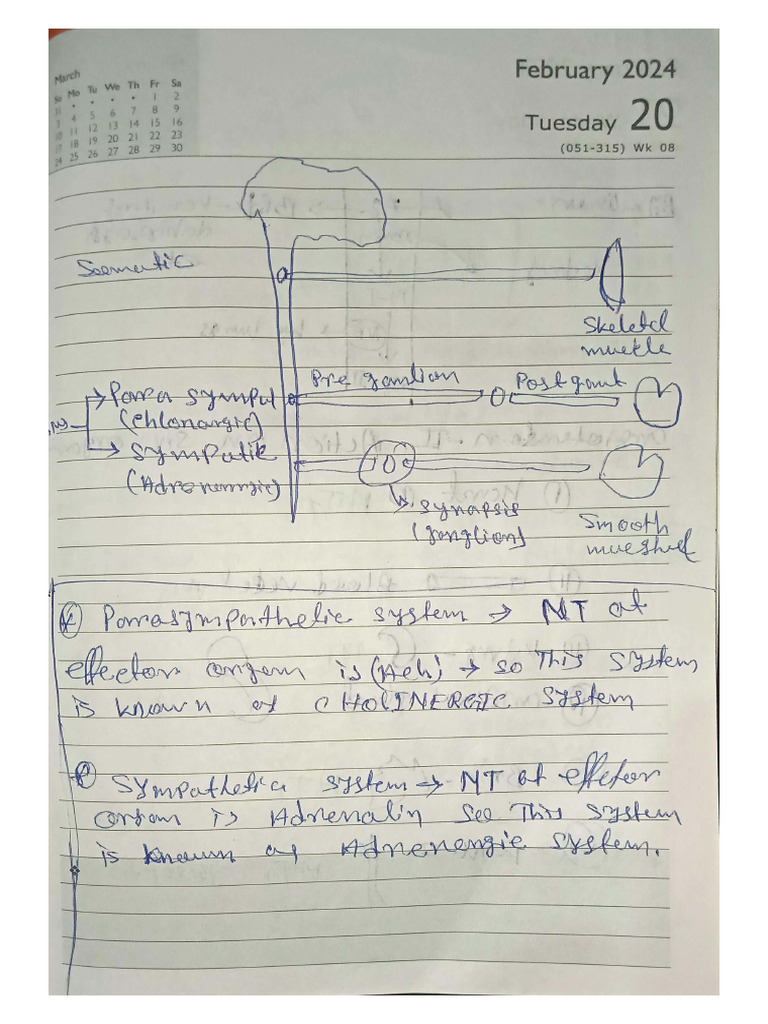 March
Su Mo Tu We Th Fr Sa
31 • • • • 1 2
3 4 5 6 7 8 9
10 11 12 13 14 15 16
17 18 19 20 21 22 23
24 25 26 27 28 29 30
February 2024
Tuesday 20
(051-315) Wk 08
Soematic
Skeletal
muscle
Pre ganlion
Postgant
Para symput
(chlonargic)
Sympatik
(Adrenenrgic)
Synapsis
(ganglion)
Smooth
Parrasympathetic system → NT at
effector orrgam is (Ach) → so This system
is known as CHOLINERGIC system
Sympathetic system → NT at effetor
orrgam is Adrenalin see This system
is known as Adrenengic system.